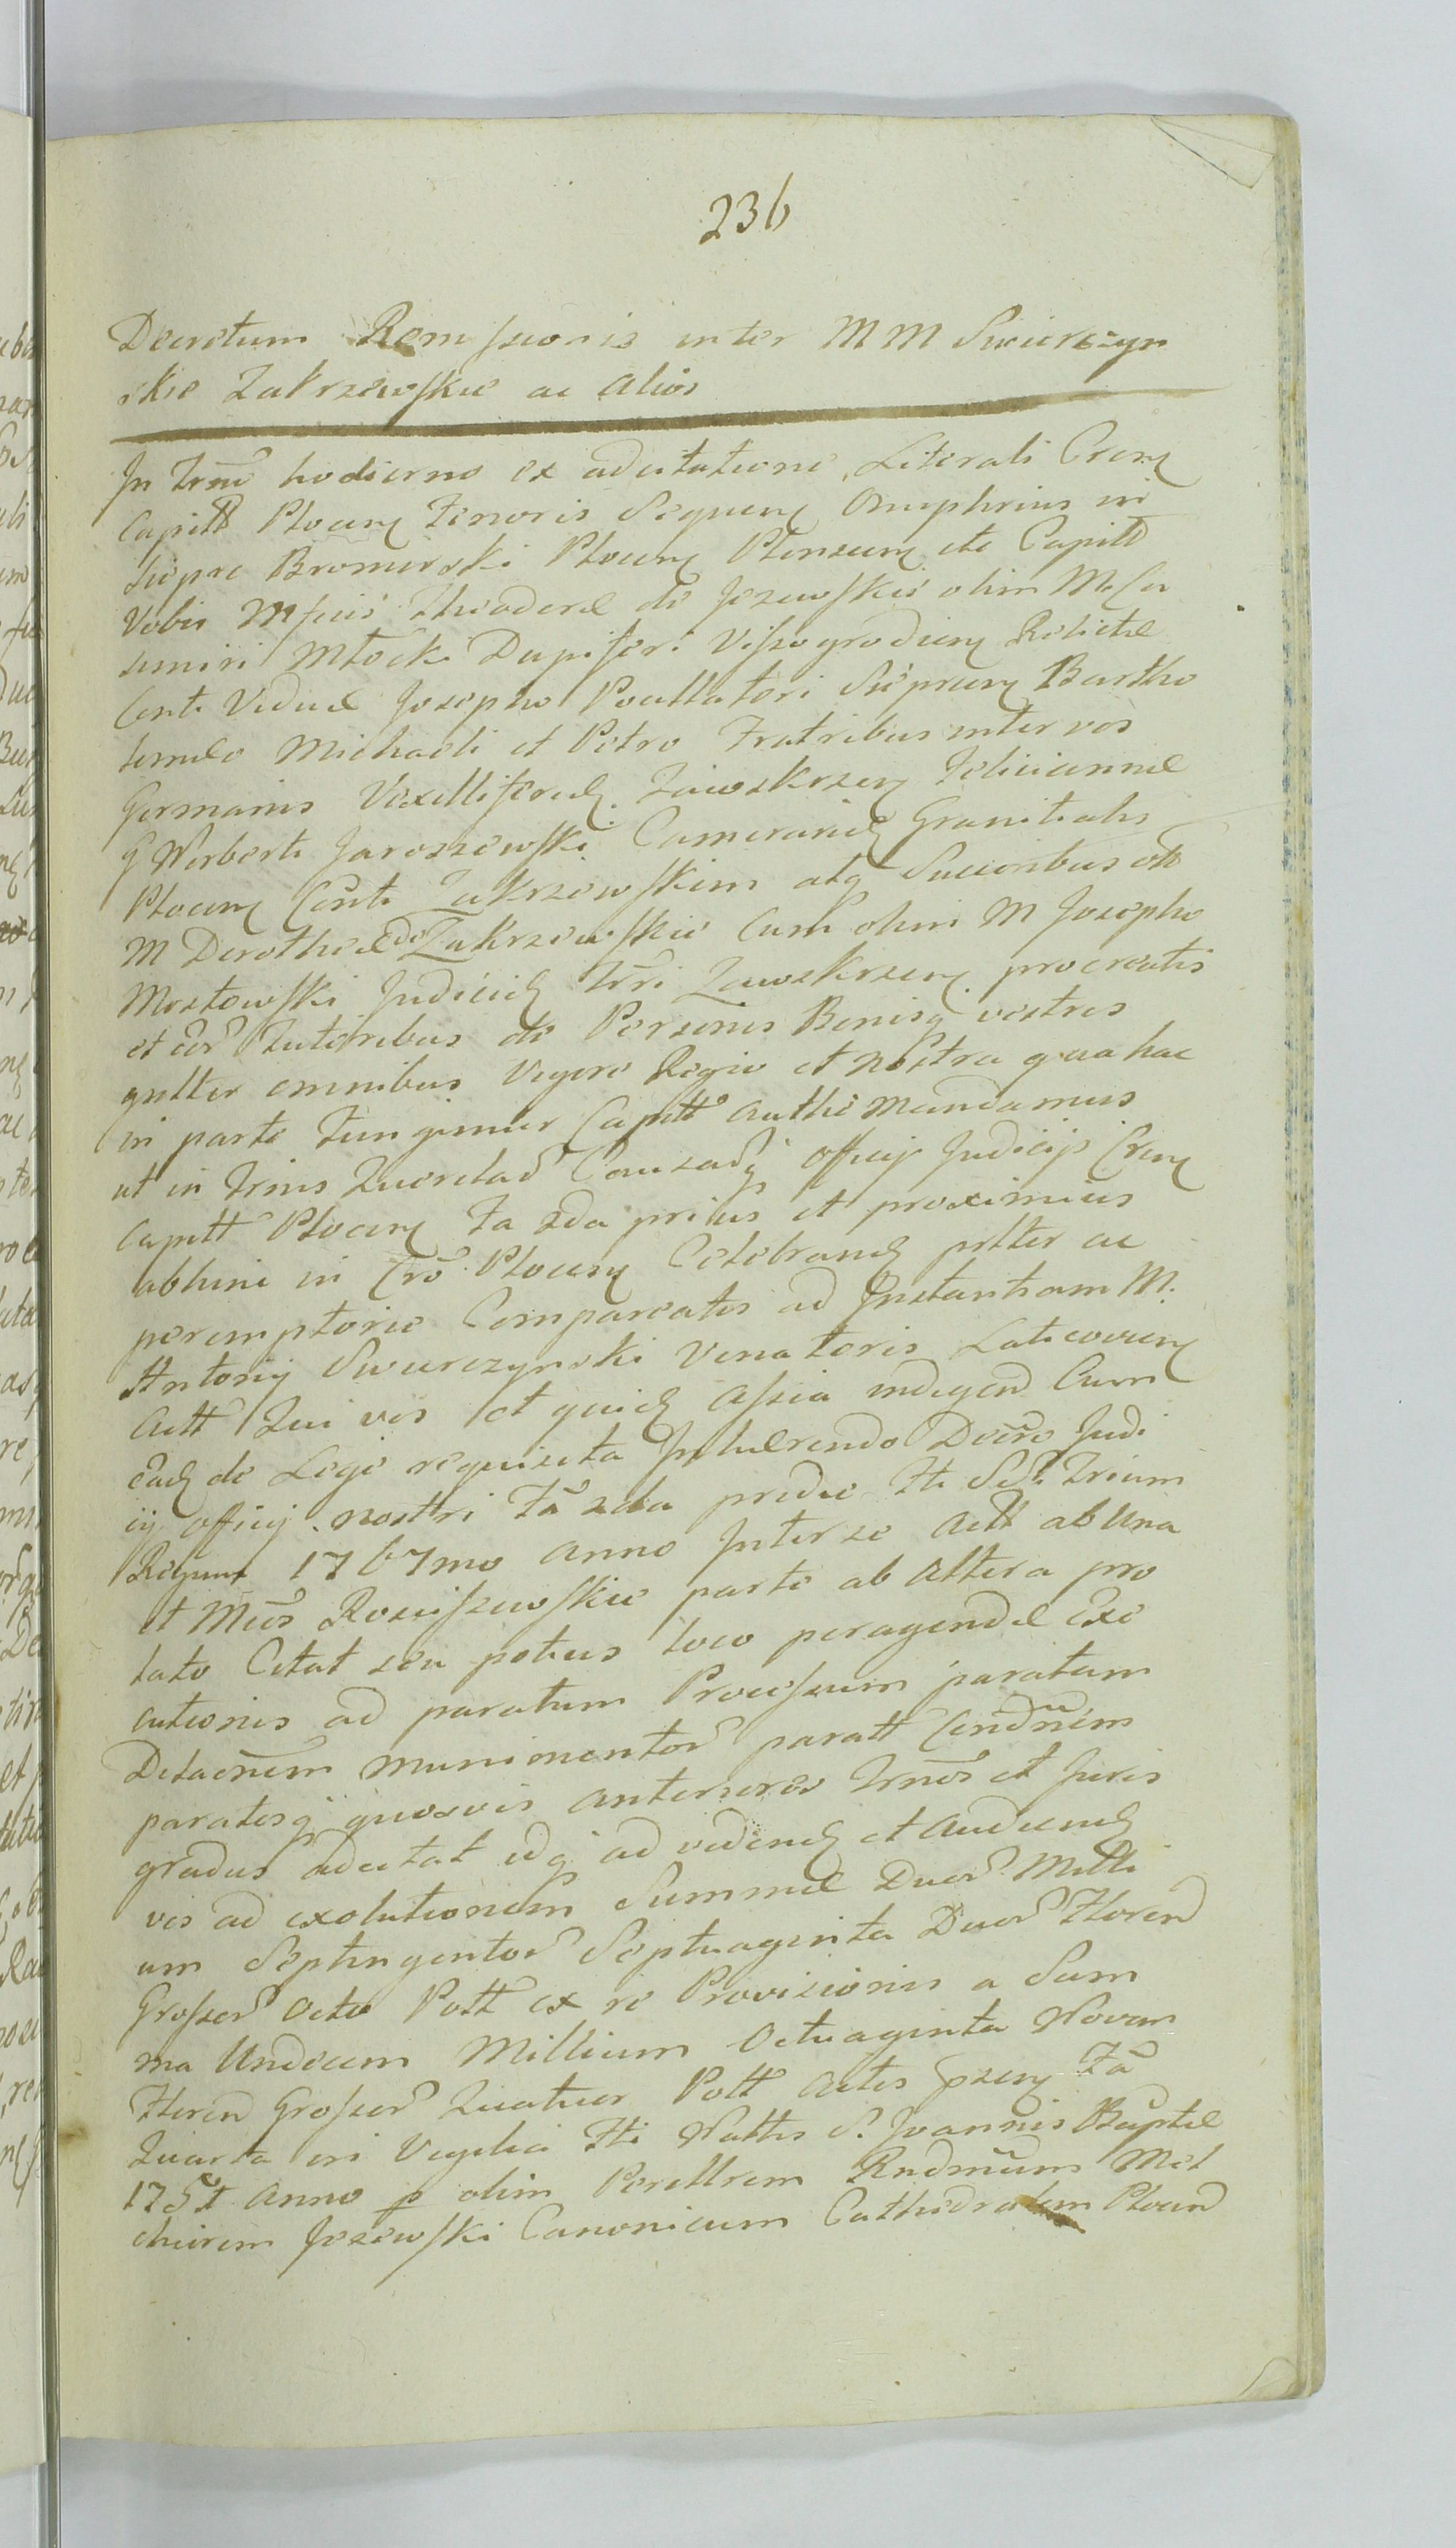 236
Decretum Remissionis inter MM Swierczyn
skie Zakrzewskie ac alios
In Trno hodierno ex adcitatione Literali Cren
Capitt Plocen Tenoris Sequen Onuphrius in
Siepre Bromirski Plocen Plonscen etc Capitt
Vobis Mfcis Theodorae de Jezewskie olim M. Ca
simiri Młocki Dapiferi Vissogrodien Relictae
Conti Viduae Josepho Pocillatori Sieprcen Bartho
lemeo Michaeli et Petro Fratribus inter vos
Germanis Vexilliferid Zawskrzen Feliciannae
G Norberti Jaroszewski Camerarid Granitialis
Plocen Conti Zakrzewskim atq Succoribus olim
M Dorotheae de Zakrzewskie Cum olim M Josepho
Mostowski Judicid Trri Zawskrzen procreatis
et eor Tutoribus de Personis Bonisq vestris
gnltter omnibus Vigore Regio et nostra qua hac
in parte fungimur Capitt Authe mandamus
ut in Trnis Querelar Causarq Officij Judicij Cren
Capitt Plocen Fa 2da prius et proximius
abhinc in Cro Plocen Celebrand pntter ac
peremptorie Compareatis ad Instantiam M.
Antonij Swierczynski Venatoris Laticovien
Actt Qui vos et quid Assia indigend Cum
ead de Lege requisita Inhaerendo Decro Judi
cij Officij nostri Fa 2da pridie Fti SS. Trium
Regum 1767mo Anno Inter se Actt ab Una
et Mcos Rosciszewskie parte ab Altera pro
lato Citat seu potius loco peragendae Exe
cutionis ad paratum Processum paratam
Detaonem munimentor paratt Condnem
paratosq quosvis anteriores Trnos et Juris
gradus adcitat idq ad vidend et Audiend
vos ad exolutionem Summae Duor Milli
um Septingentor Septuaginta Duor Floren
Grosser Octo Pott ex re Provisionis a Sum
ma Undecim Millium Octuaginta Novem
Floren Grosser Quatuor Pott Actis pzen Fa
Quarta in Vigilia Fti Nattis S. Joannis Baptae
1751 Anno p olim Perillrem Rndmum Mel
chiorem Jezewski Canonicum Cathedralem Plocen